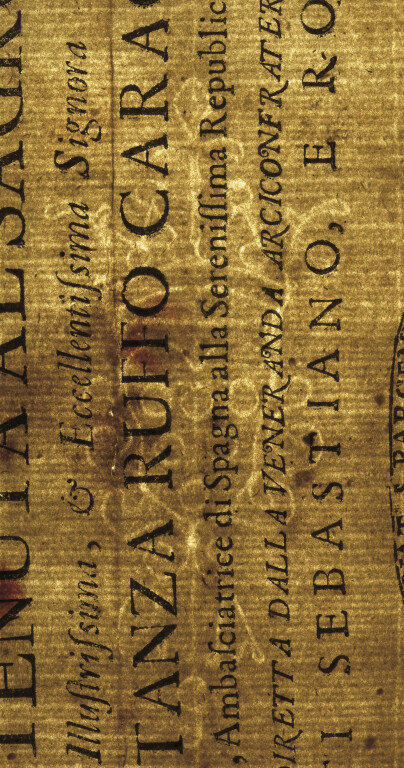 TENUTA AL SAGR
Illuſtriſsima, & Eccellentiſsima Signora
TANZA RUFFO CARAC
, Ambaſciatrice di Spagna alla Sereniſſima Republic
DIRETTA DALLA VENERANDA ARCICONFRATER
TI SEBASTIANO, E RO